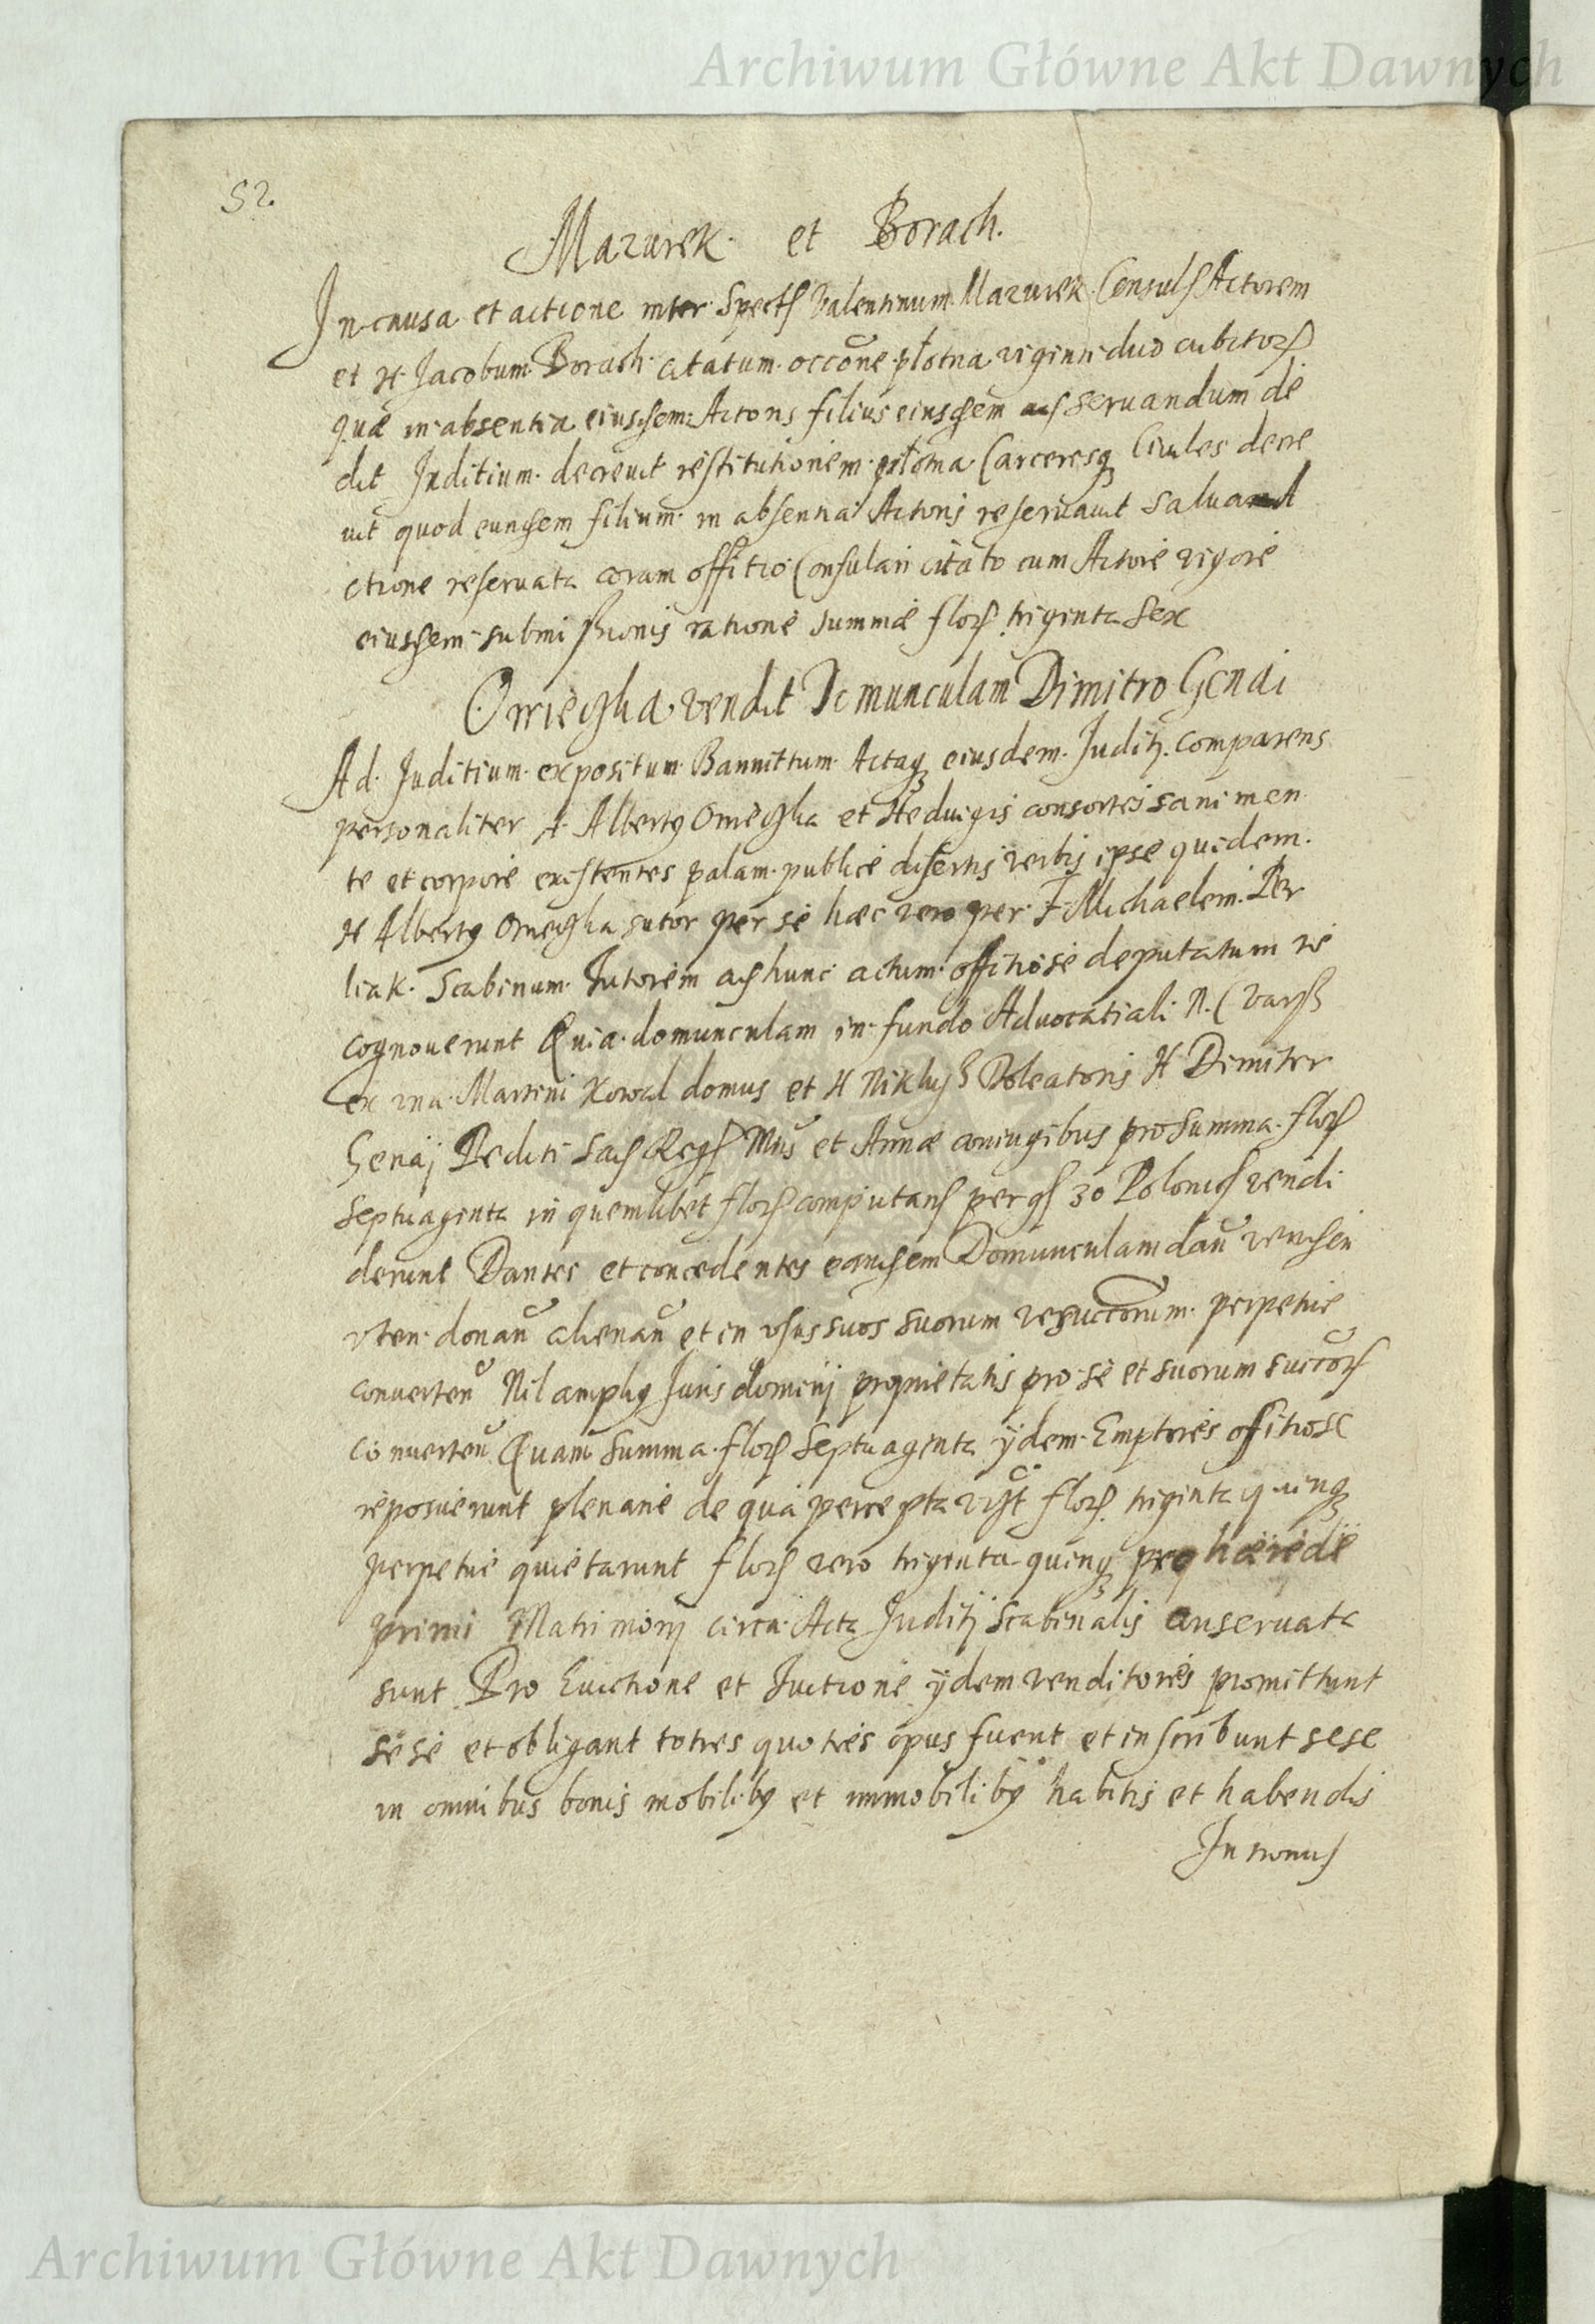 Archiwum Główne Akt Dawnych
52.
Mazurek et Borach.
In causa et actione inter Spect Valentinum Mazurek Consul Actorem
et H Jacobum Borach citatum occōne płotna viginti duo cubitor
quæ in absentia eiusdem Actoris filius eiusdem ad seruandum de
dit Juditium decreuit restitutionem płotna Carceresq Ciuiles decre
uit quod eundem filium in absentia Actoris reseruauit salua
ctione reseruata coram offitio Consulari citato cum Actore vigore
eiusdem submissionis ratione summæ flor triginta sex
Omiegha vendit Domunculam Dimitro Genai
Ad Juditium expositum Bannittum Actaq eiusdem Juditij comparens
personaliter H Albertq Omiegha et Heduigis consortes sani men
te et corpore existentes palam publice disertis verbis ipse quidem
H Albertq Omiegha sutor per se hæc vero per F Michaelem Per
liak Scabinum Tutorem ad hunc actum offitiose deputatum re
cognouerunt Quia domunculam in fundo Aduocatiali
ex una Martini Kowal domus et H Doleatoris H Dimiter
Genaij Pediti Sac Reg Mtis et Annæ coniugibus pro summa flor
septuaginta in quemlibet flor computan per g 30 Polonic vendi
derunt Dantes et concedentes eandem Domunculam dan venden
vten donan alienan et in vsus suos suorum succorum perpetue
conuerten Nil ampliq Juris dominij proprietatis pro se et suorum succor
conuerten Quam summa flor septuaginta ijdem Emptores offitiose
reposuerunt plenarie de qua percepta flor triginta quinq
perpetue quietarunt flor vero triginta quinq pro hærede
primi Matrimonij circa Acta Juditij Scabinalis conseruata
sunt Pro Euictione et Tuitione ijdem venditores promittunt
sese et obligant toties quoties opus fuerit et inscribunt sese
in omnibus bonis mobilibq et immobilibq habitis et habendis
Archiwum Główne Akt Dawnych